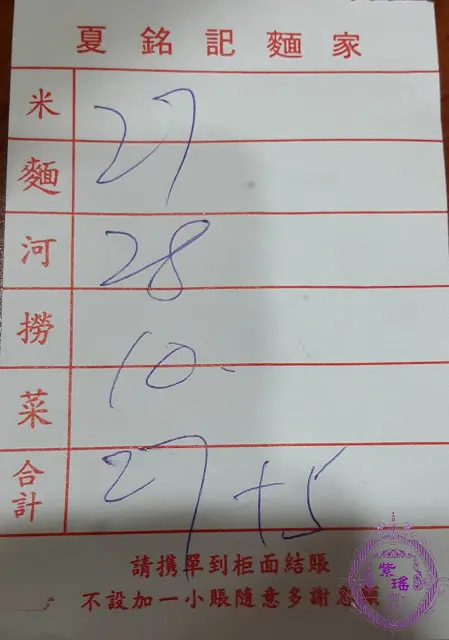 夏銘記麵家
米
27
麵
河
28
撈
10-
菜
27+5
合計
請携單到柜面結賬
不設加一小賬隨意多謝惠顧
紫瑤